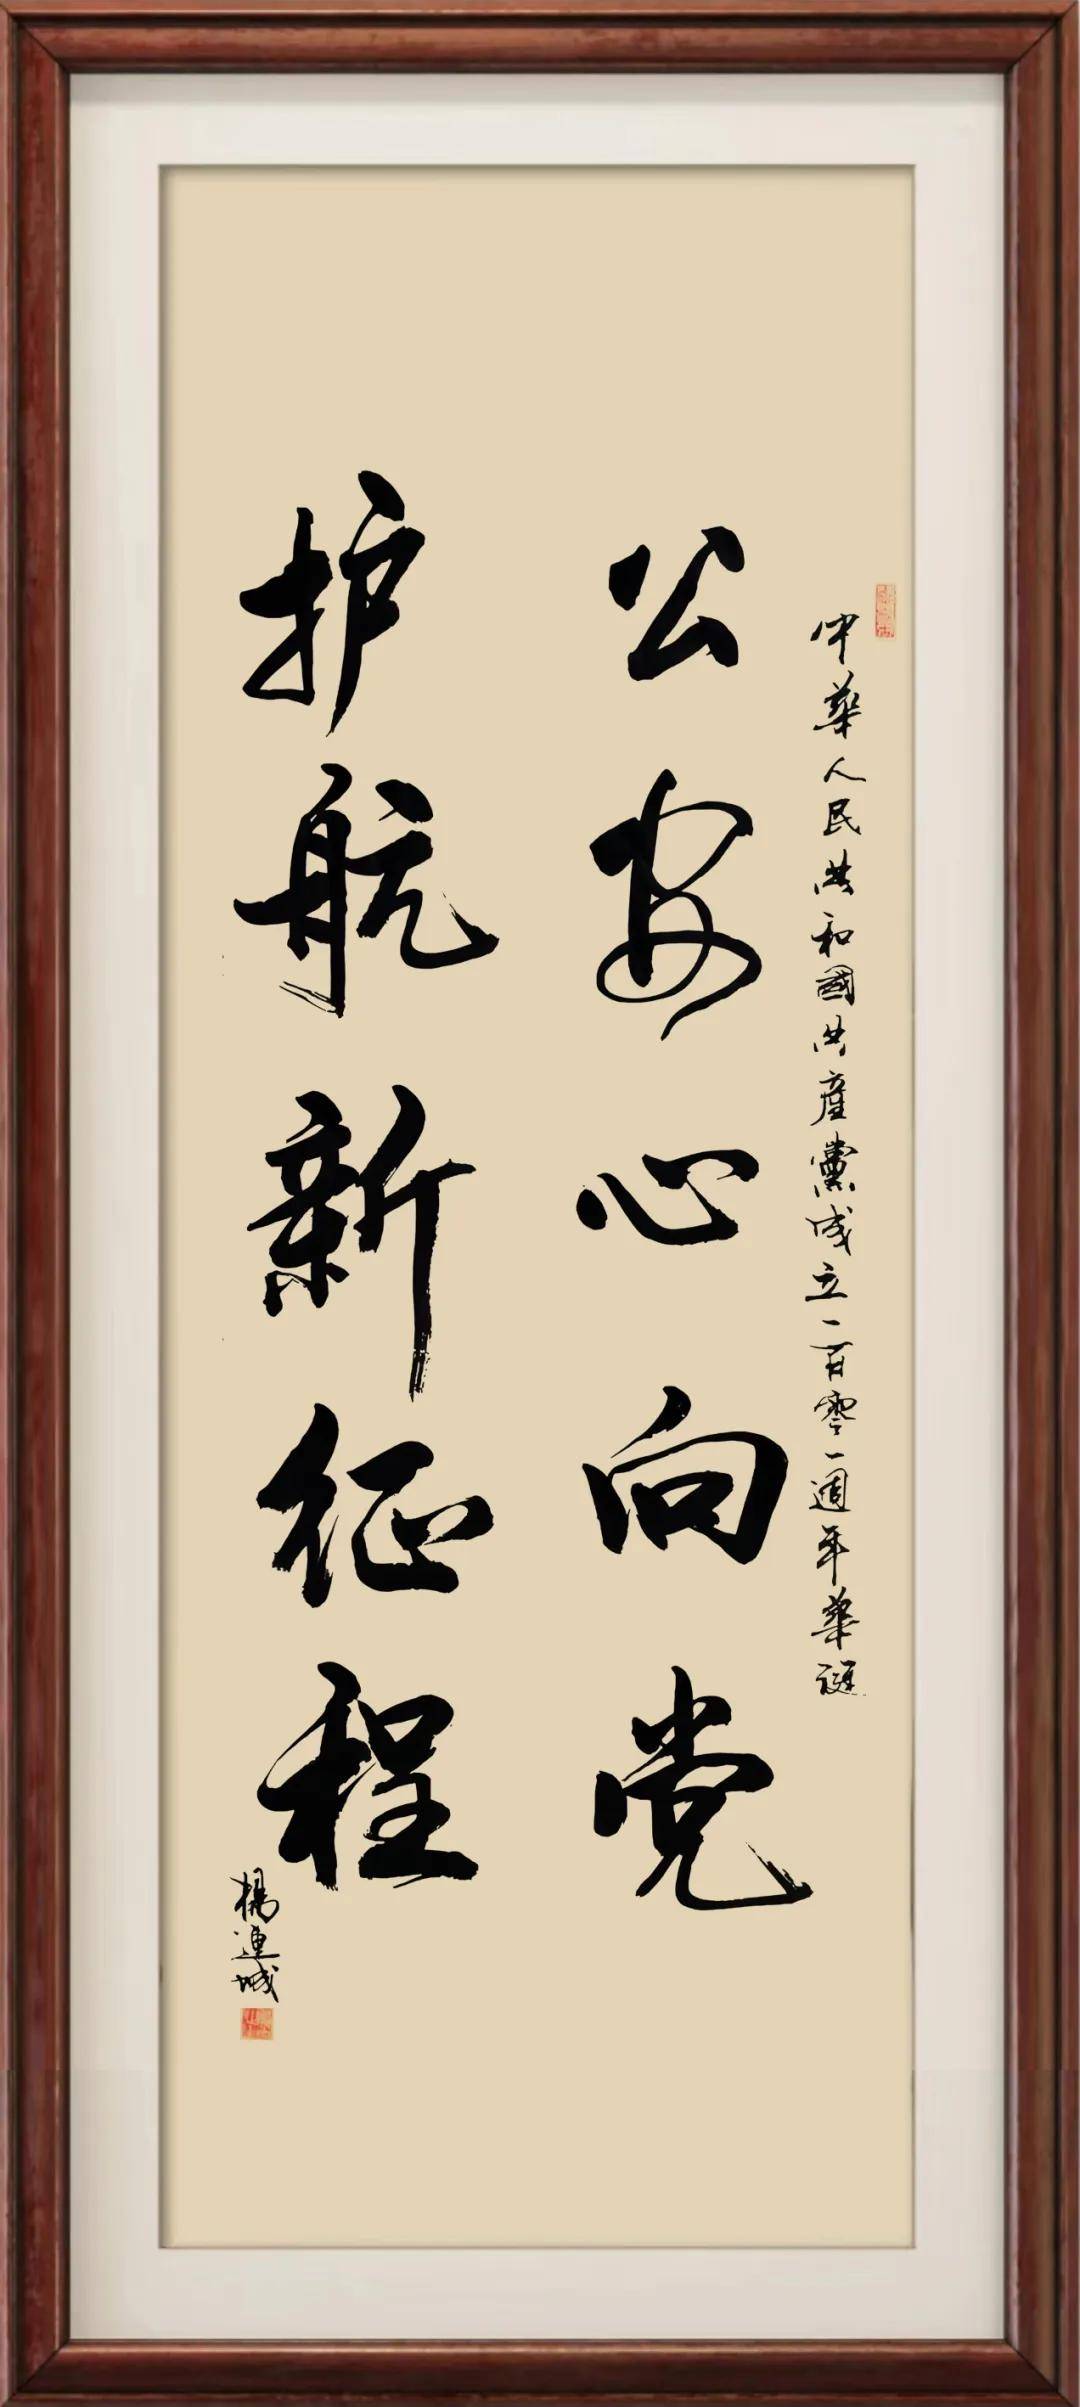 中華人民共和國共產黨成立一百零一週年華誕
公安心向党
护航新征程
楊連城